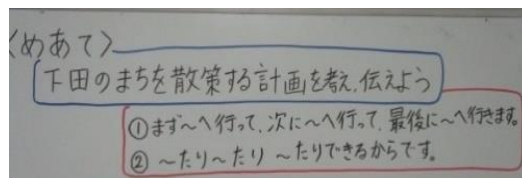 〈めあて〉
下田のまちを散策する計画を考え、伝えよう
①まず~へ行って、次に~へ行って、最後に~へ行きます。
②~たり~たり ~たりできるからです。